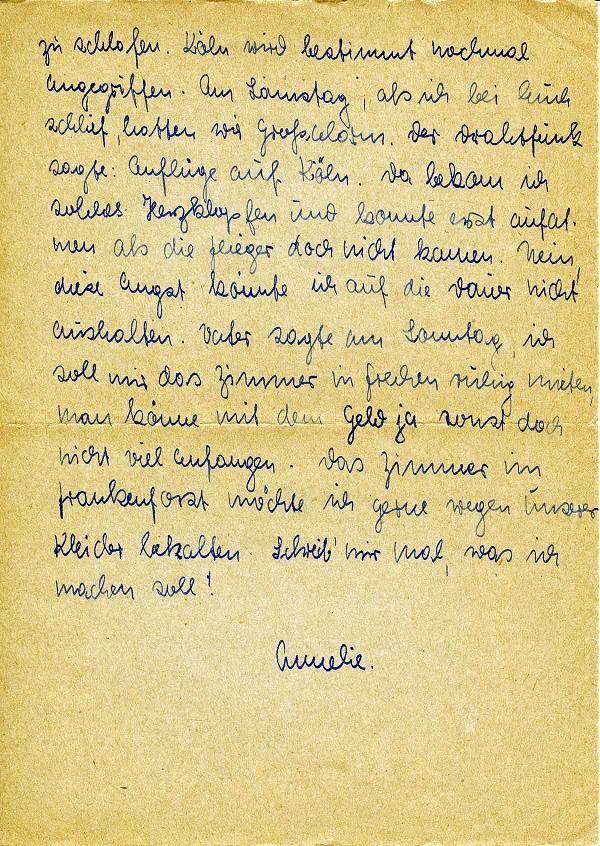 zu schlafen. Köln wird bestimmt nochmal
angegriffen. Am Samstag, als ich bei Euch
schlief, hatten wir Großalarm. Der Drahtfunk
sagte: Anflüge auf Köln. Da bekam ich
solches Herzklopfen und konnte erst aufat-
men als die Flieger doch nicht kamen. Nein,
diese Angst könnte ich auf die Dauer nicht
aushalten. Vater sagte am Sonntag, ich
soll mir das Zimmer in Frechen ruhig mieten,
man könne mit dem Geld ja sonst doch
nicht viel anfangen. Das Zimmer im
Frankenforst möchte ich gerne wegen unserer
Kleider behalten. Schreib' mir mal, was ich
machen soll!
Annelie.